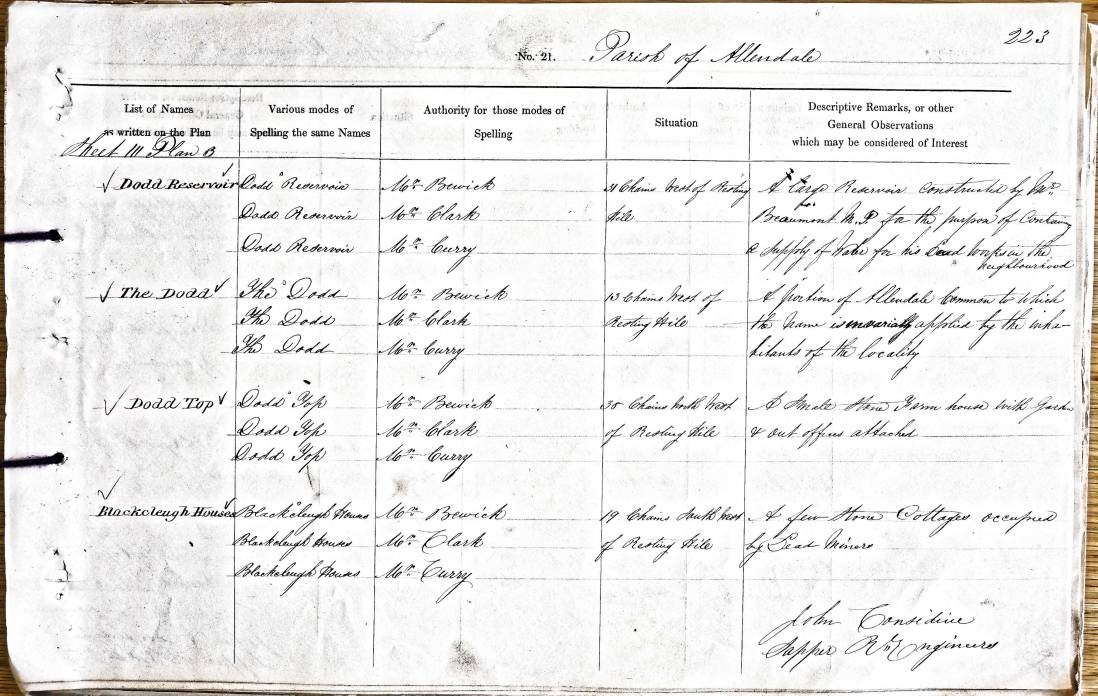 223
No. 21. Parish of Allendale
List of Names as written on the Plan
Various modes of Spelling the same Names
Authority for those modes of Spelling
Situation
Descriptive Remarks, or other General Observations which may be considered of Interest
Sheet 111 Plan B
Dodd Reservoir Dodd Reservoir Mr. Bewick 31 Chains West of Resting A large Reservoir Constructed by Mr.
Dodd Reservoir Mr. Clark Hile Beaumont M.P. for the purpose of Containg
Dodd Reservoir Mr. Curry a supply of Water for his Lead works in the
neighbourhood
The Dodd The Dodd Mr. Bewick 13 Chains West of A portion of Allendale Common to Which
The Dodd Mr. Clark Resting Hile the Name is invariably applied by the inha-
The Dodd Mr. Curry bitants of the locality
Dodd Top Dodd Top Mr. Bewick 38 Chains North West A Small Stone Farm house with Garden
Dodd Top Mr. Clark of Resting Hile & out offices attached
Dodd Top Mr. Curry
Blackcleugh Houses Blackcleugh Houses Mr. Bewick 19 Chains South West A few Stone Cottages occupied
Blackcleugh Houses Mr. Clark of Resting Hile by Lead Miners
Blackcleugh Houses Mr. Curry
John Considine
Sapper Rl. Engineers